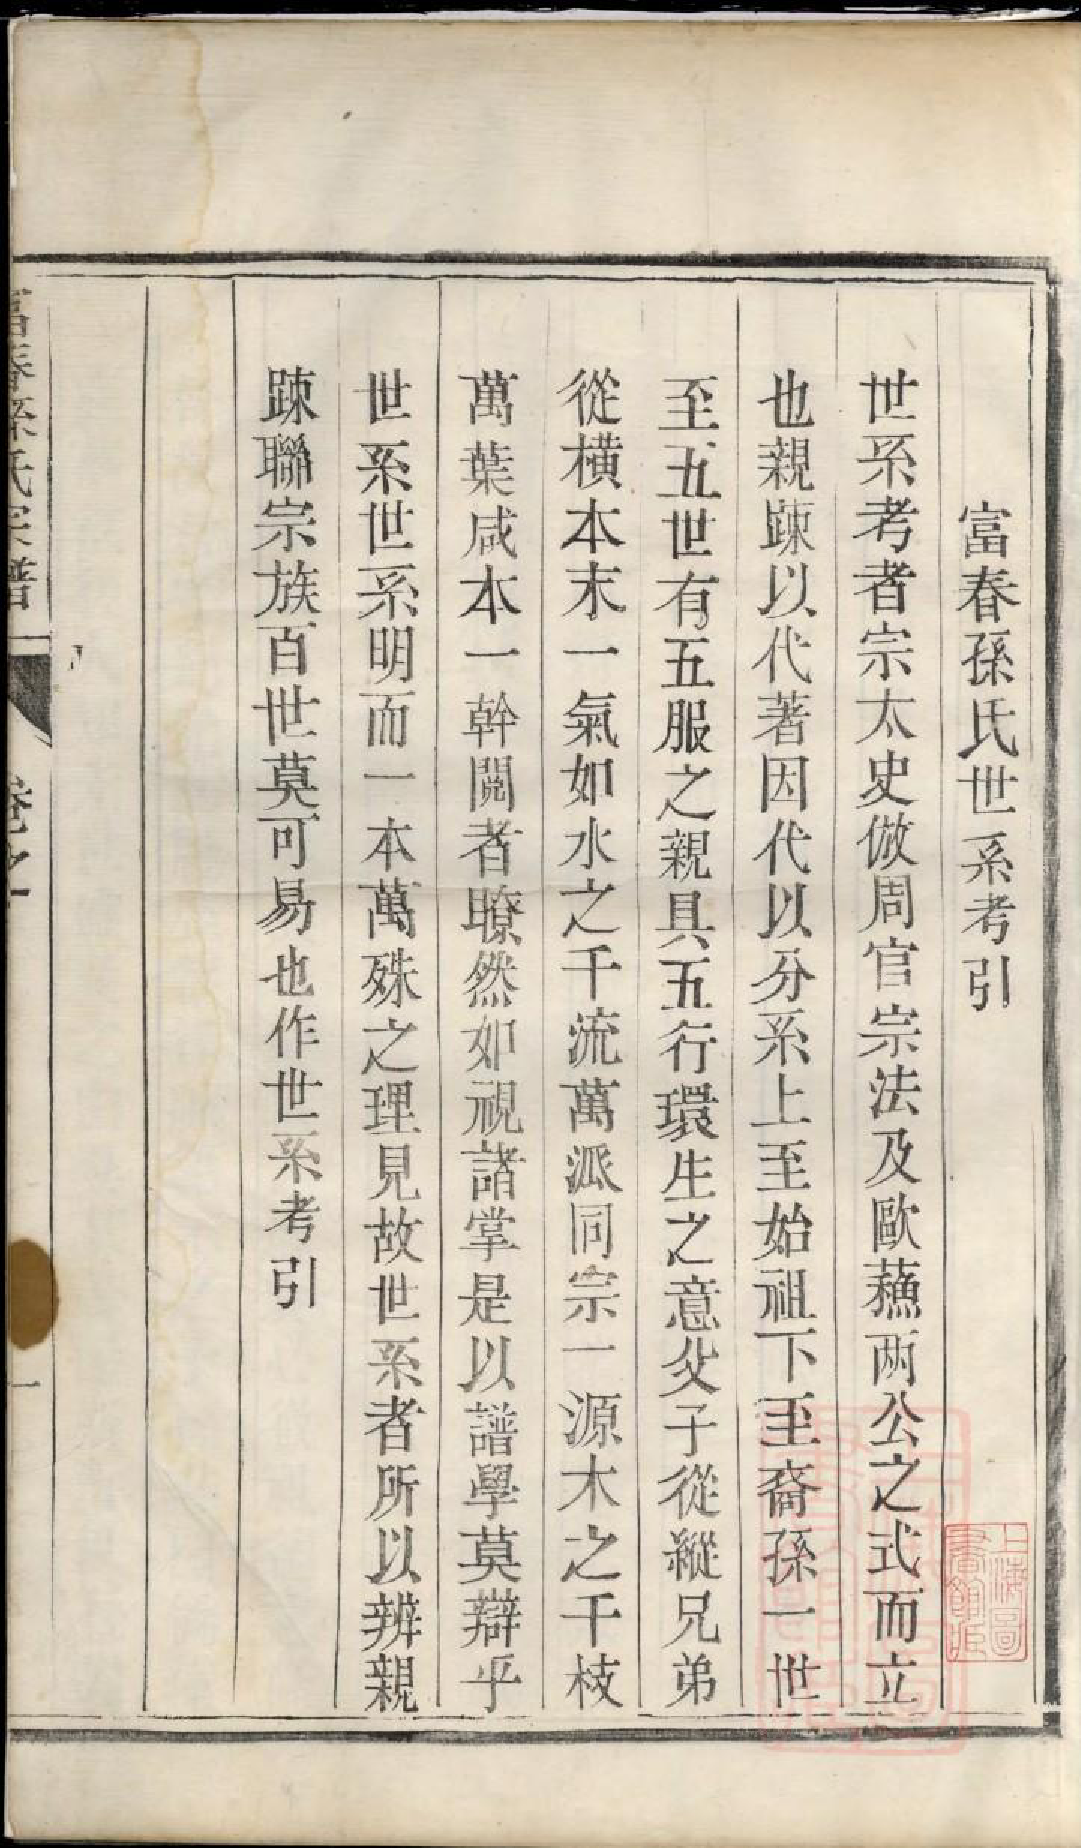 富春孫氏世系考引
世系考者宗太史倣周官宗法及歐蘓兩公之式而立
也親踈以代著因代以分系上至始祖下至裔孫一世
至五世有五服之親具五行環生之意父子從縱兄弟
從橫本末一氣如水之千流萬派同宗一源木之千枝
萬葉咸本一幹閱者瞭然如視諸掌是以譜學莫辯乎
世系世系明而一本萬殊之理見故世系者所以辨親
踈聯宗族百世莫可易也作世系考引
富春孫氏宗譜
卷之
一
上海圖
書館藏